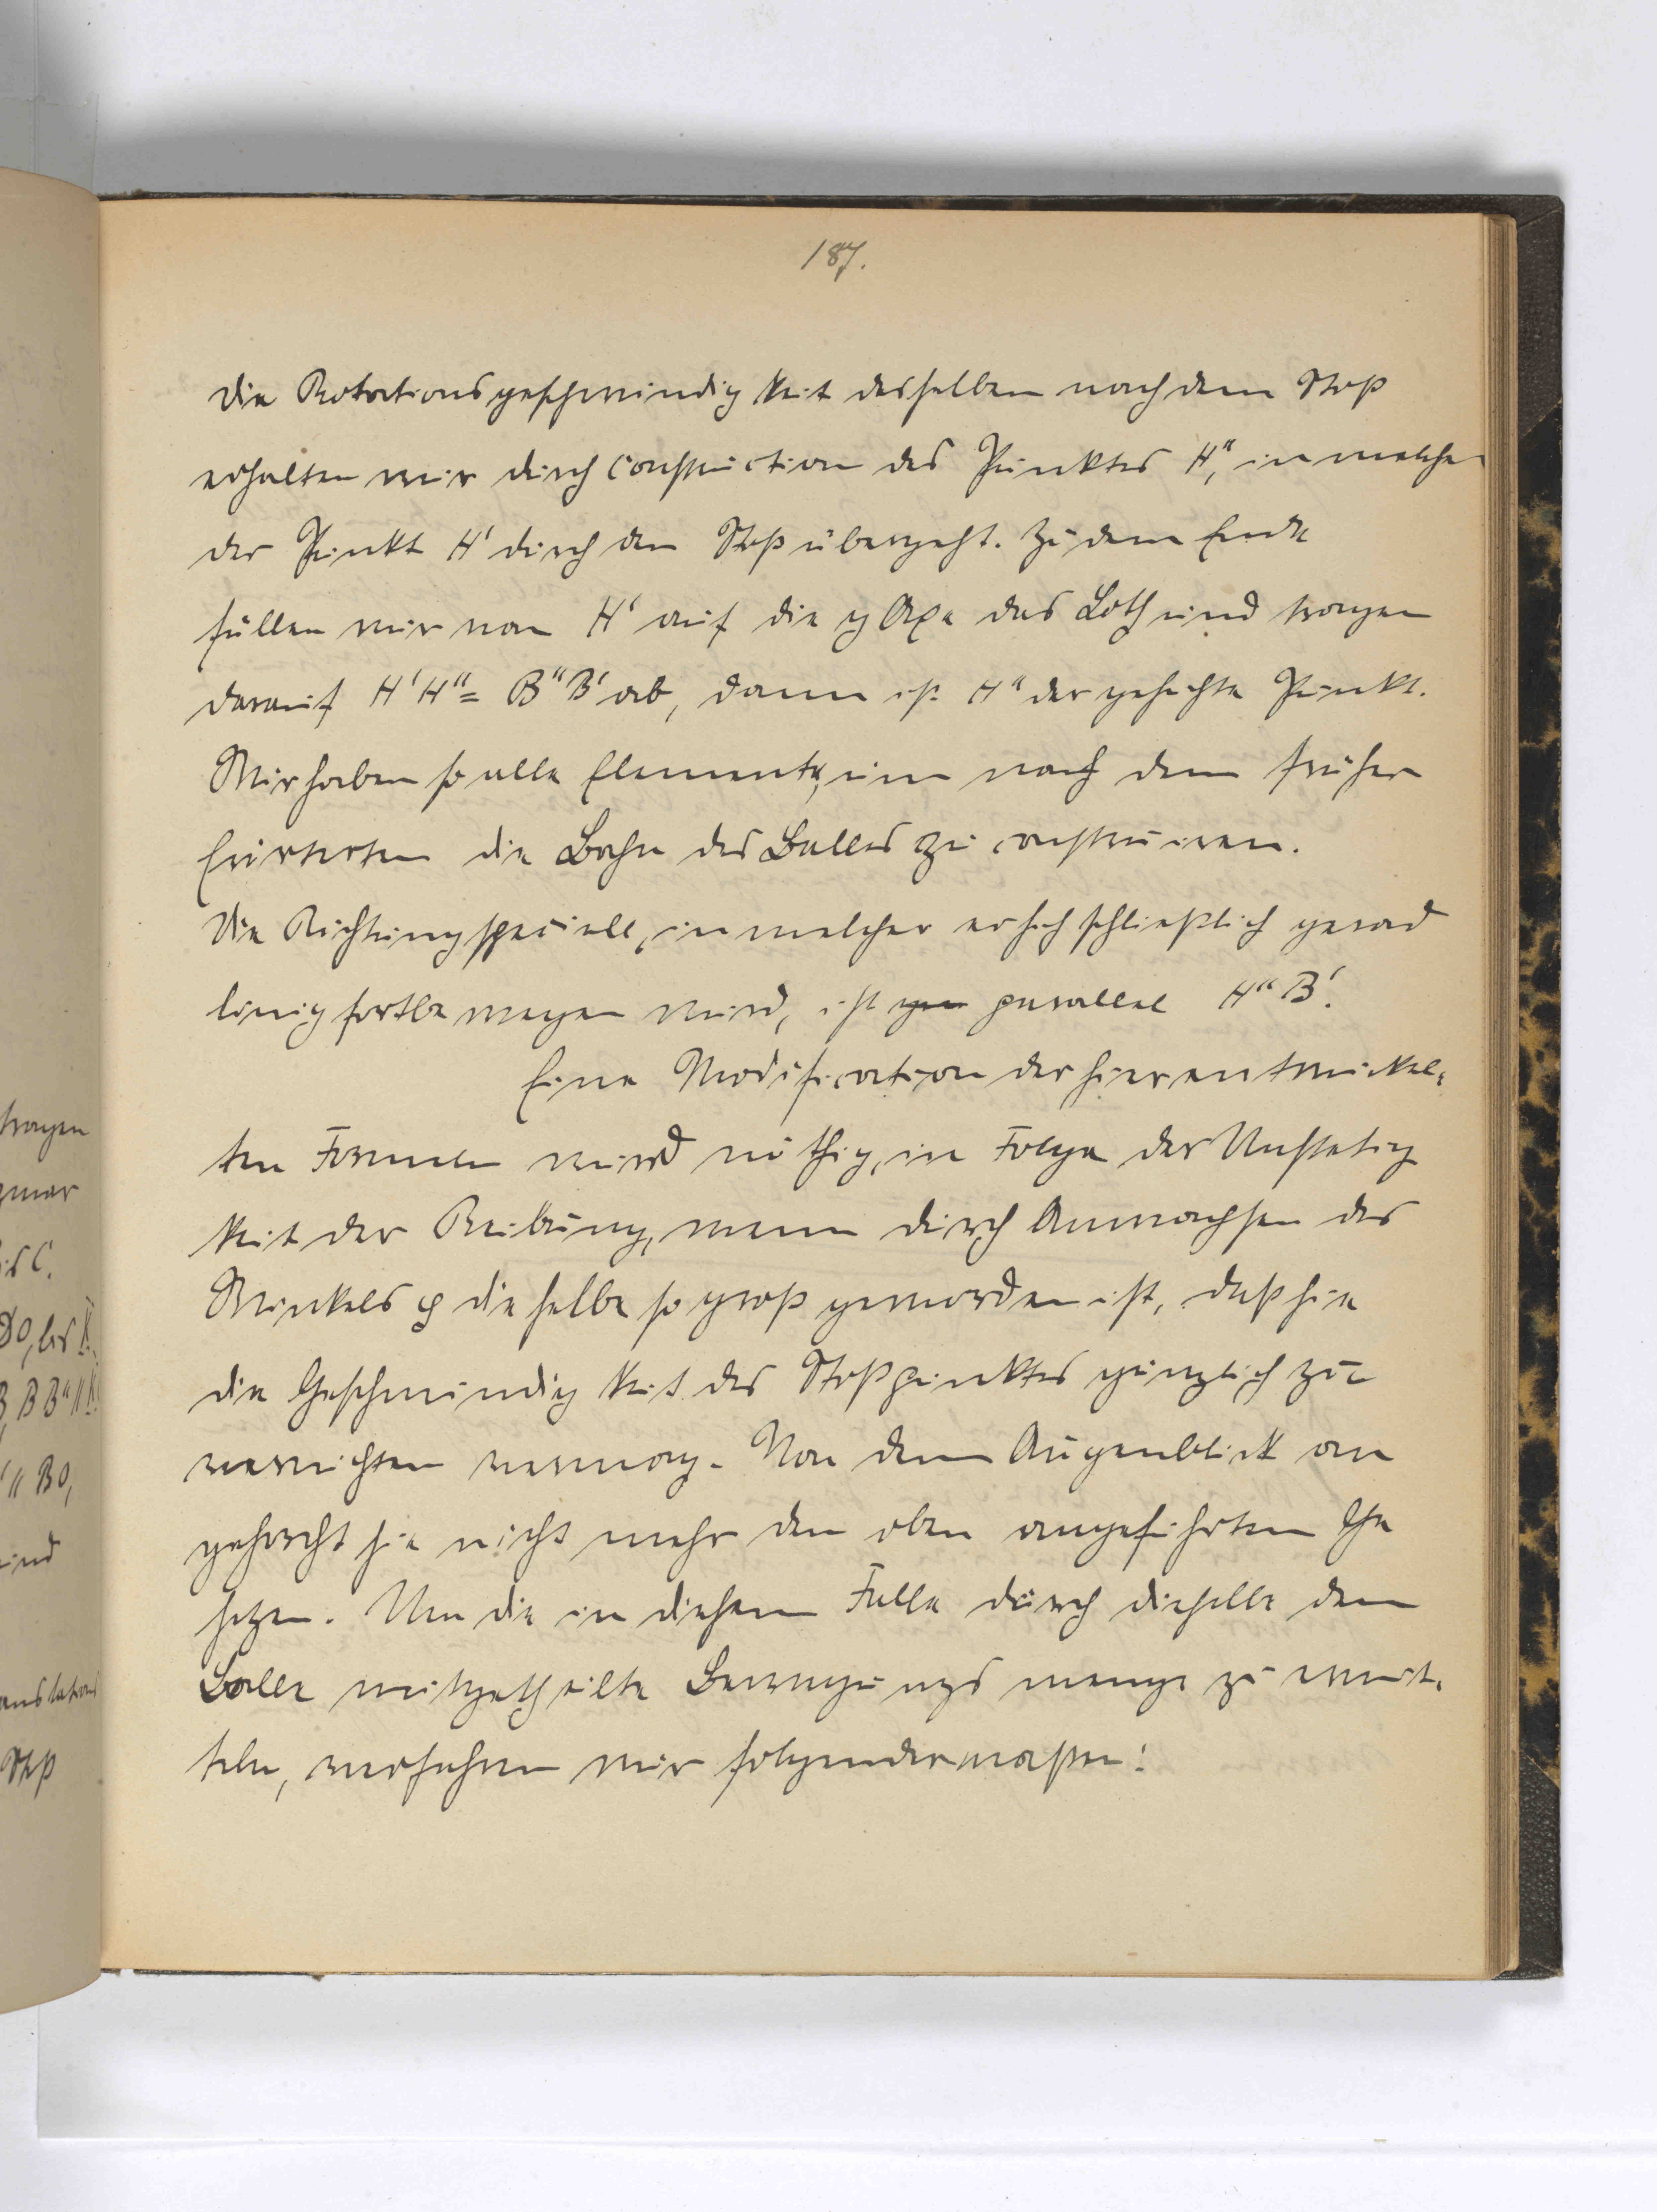 187.
Die Rotationsgeschwindigkeit desselben nach dem Stoß
erhalten wir durch Construction des Punktes H", in welchen
der Punkt H' durch den Stoß übergeht. Zu dem Ende
fällen wir von H' auf die y Axe das Loth und tragen
darauf H'H" = B"B' ab, dann ist H" der gesuchte Punkt.
Wir haben so alle Elemente, um nach dem früher
Erörterten die Bahn des Balles zu construiren.
Die Richtung speciell, in welcher er sich schließlich gerad
linig fortbewegen wird, ist parallel H"B'.
Eine Modification der hier entwickel-
ten Formeln wird nöthig, in Folge der Unstetig
keit der Reibung, wenn durch Anwachsen des
Winkels φ dieselbe so groß geworden ist, daß sie
die Geschwindigkeit des Stoßpunktes gänzlich zu
vernichten vermag. Von dem Augenblick an
gehorcht sie nicht mehr den oben angeführten Ge
setzen. Um die in diesem Falle durch dieselbe dem
Balle mitgetheilte Bewegungsmenge zu ermit-
teln, verfahren wir folgendermaßen:
tragen
zwar
is C.
ind
Stoß